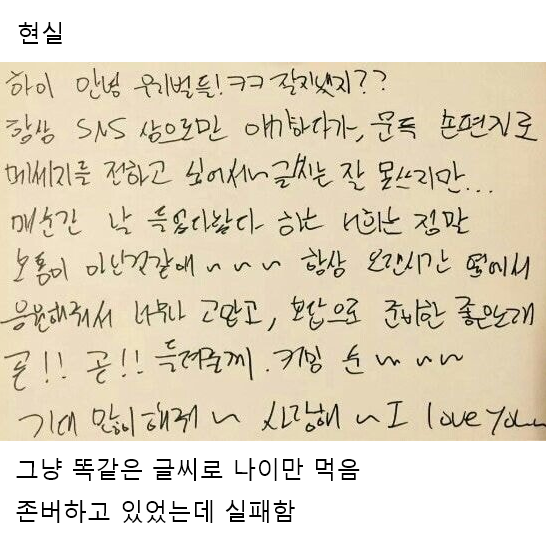 현실
하이 안녕 우리벌들!ㅋㅋ 잘지냈지??
항상 SNS 상으로만 얘기하다가, 문득 손편지로
메세지를 전하고 싶어서~ 글씨는 잘 못쓰지만...
매순간 날 하는 너희는 정말
보통이 아닌것같애 ~ ~ ~ 항상 오랜시간 옆에서
응원해줘서 너무나 고맙고, 보답으로 준비한 좋은노래
곧!! 곧!! 들려줄께. 커밍 순 ~ ~ ~
기대 많이해줘 ~ 사랑해 ~ I love You~
그냥 똑같은 글씨로 나이만 먹음
존버하고 있었는데 실패함